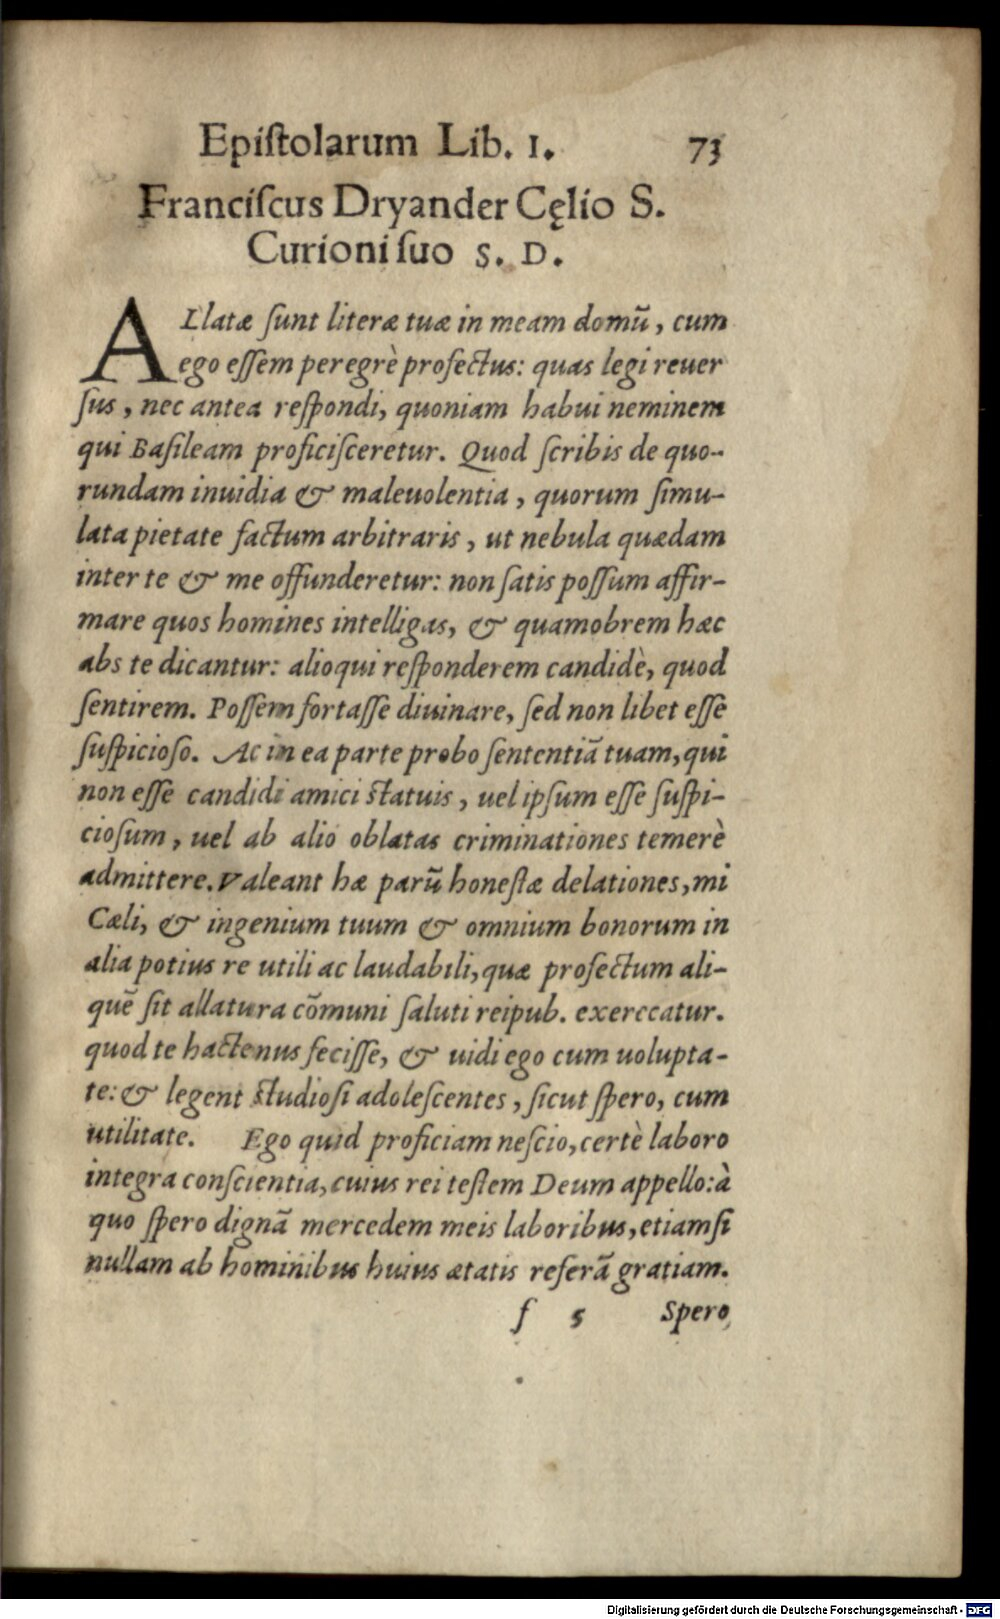 Epiſtolarum Lib. I. 73
Franciſcus Dryander Cęlio S.
Curioni ſuo S. D.
ALlatæ ſunt literæ tuæ in meam domũ, cum
ego eſſem peregrè profectus: quas legi reuer
ſus, nec antea reſpondi, quoniam habui neminem
qui Baſileam proficiſceretur. Quod ſcribis de quo-
rundam inuidia & maleuolentia, quorum ſimu-
lata pietate factum arbitraris, ut nebula quædam
inter te & me offunderetur: non ſatis poſſum affir-
mare quos homines intelligas, & quamobrem hæc
abs te dicantur: alioqui reſponderem candidè, quod
ſentirem. Poſſem fortaſſe diuinare, ſed non libet eſſe
ſuſpicioſo. Ac in ea parte probo ſententiã tuam, qui
non eſſe candidi amici ſtatuis, uel ipſum eſſe ſuſpi-
cioſum, uel ab alio oblatas criminationes temerè
admittere. Valeant hæ parũ honeſtæ delationes, mi
Cæli, & ingenium tuum & omnium bonorum in
alia potius re utili ac laudabili, quæ profectum ali-
quẽ ſit allatura cõmuni ſaluti reipub. exerceatur.
quod te hactenus feciſſe, & uidi ego cum uolupta-
te: & legent ſtudioſi adoleſcentes, ſicut ſpero, cum
utilitate. Ego quid proficiam neſcio, certè laboro
integra conſcientia, cuius rei teſtem Deum appello: à
quo ſpero dignã mercedem meis laboribus, etiamſi
nullam ab hominibus huius ætatis referã gratiam.
f 5 Spero
Digitalisierung gefördert durch die Deutsche Forschungsgemeinschaft - DFG